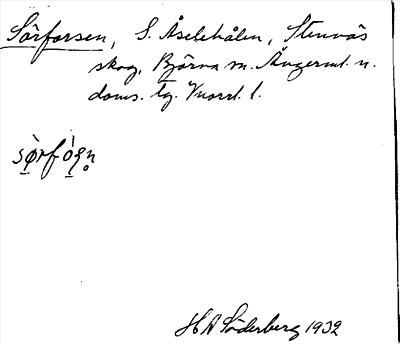 Sörforsen, S. Åselehålen, Stenvås
skog, Björna sn. Ångerml. n.
doms. tg. Vnorrl. l.
sǫ̀rfǫ̀ʂn̥
H A Söderberg 1932